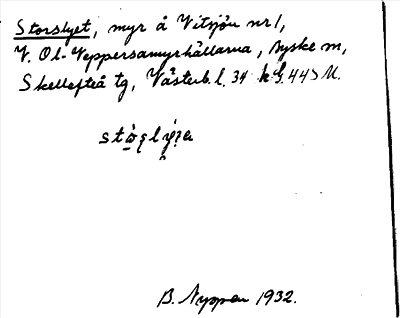 Storslyet, myr å Vitsjön nr 1,
V. Ol-Veppersamyrhällarna, Byske sn,
Skellefteå tg, Västerb. l. 34 k S. 443 U.
B. Nyppen 1932.